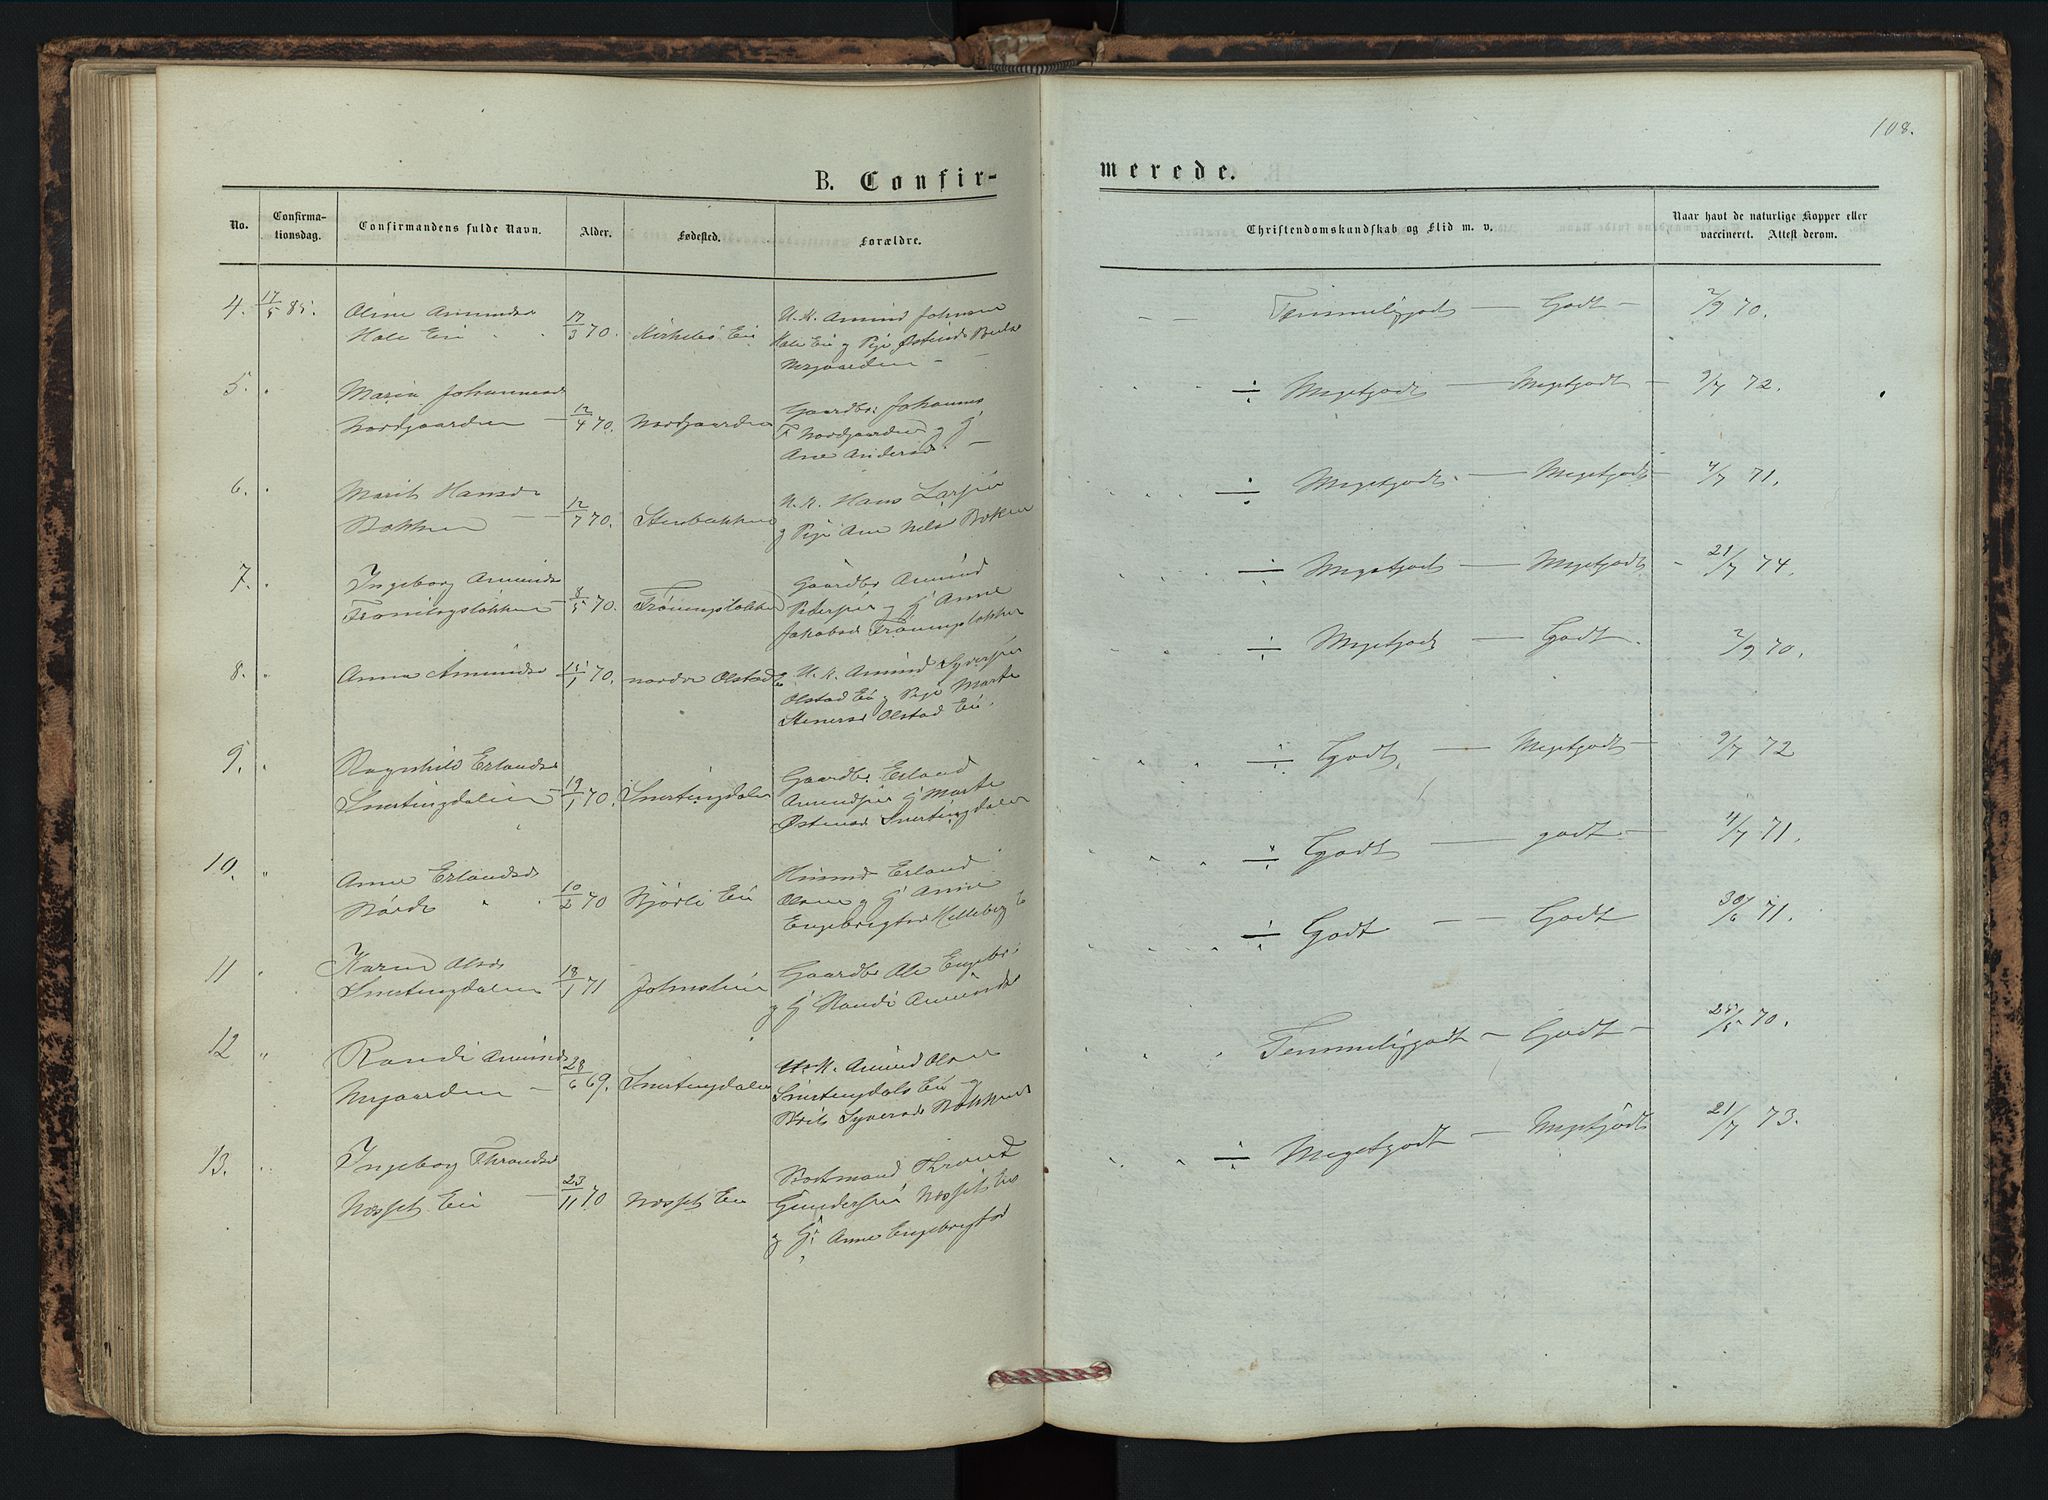 108.
B. Confir-
merede.
No.
Confirma-
tionsdag.
Confirmandens fulde Navn.
Alder.
Fødested.
Forældre.
Christendomskundskab og Flid m. v.
Naar havt de naturlige Kopper eller
vaccineret. Attest derom.
4. 17/5 85.
Oline Amundsd
Hole Eie
17/3 70.
Kirkebø Eie
U. K. Amund Johnsen
Hole Eie og Pige Østensd
Nergaarden
Temmeliggodt — Godt — 2/9 70.
5. "
Maria Johannesd
Nordgaarden — 12/4 70. Nordgaarden
Gaardbr. Johannes
F Nordgaarden og G
Ane Andersd. —
÷ Megetgodt — Megetgodt — 9/7 72.
6. "
Marit Hansd
Bakken — 12/7 70. Stenbakken
U. K. Hans Larsen
og Pige Ane Nelsd Bakken
÷ Megetgodt — Megetgodt — 4/7 71.
7. "
Ingeborg Amundsd
8/5 70.
Gaardbr Amund
Petersen og G Anne
Jakobsd
÷ Megetgodt — Megetgodt — 21/7 74.
8. "
Anna Amundsd 15/1 70. nordre Olstad E
U. K. Amund Syversen
Olstad Eie og Pige Marte
Stenersd Olstad Eie.
÷ Megetgodt — Godt. 2/9 70.
9. "
Ragnhild Erlandsd
Snertingdalen 19/1 70. Snertingdalen
Gaardbr. Erland
Amundsen G Marte
Østensd Snertingdalen
÷ Godt. — Megetgodt — 9/7 72
10. "
Anne Erlandsd
10/2 70 Bjørli Eie
Husmd Erland
Olsen og G Anne
Engebrigtsd Helleberg E
÷ Godt — godt — 4/7 71.
11 "
Karen Olsd
Snertingdalen 18/1 71
Gaardbr Ole Engebr.
og G Randi Amundsd
÷ Godt — — Godt 30/6 71.
12 "
Randi Amundsd
Nergaarden — 28/6 69. Snertingdalen
U. K. Amund Olsen
Snertingdals Eie og
Brit Syversd Bakken
Temmeliggodt — Godt — 25/5 70.
13. "
Ingebor Throndsd
Næsset Eie — 23/11 70 Næsset Eie
Thrond
Gundersen Næsset Eie
og G. Anne Engebrigtsd
÷ Megetgodt — Megetgodt 21/7 73.